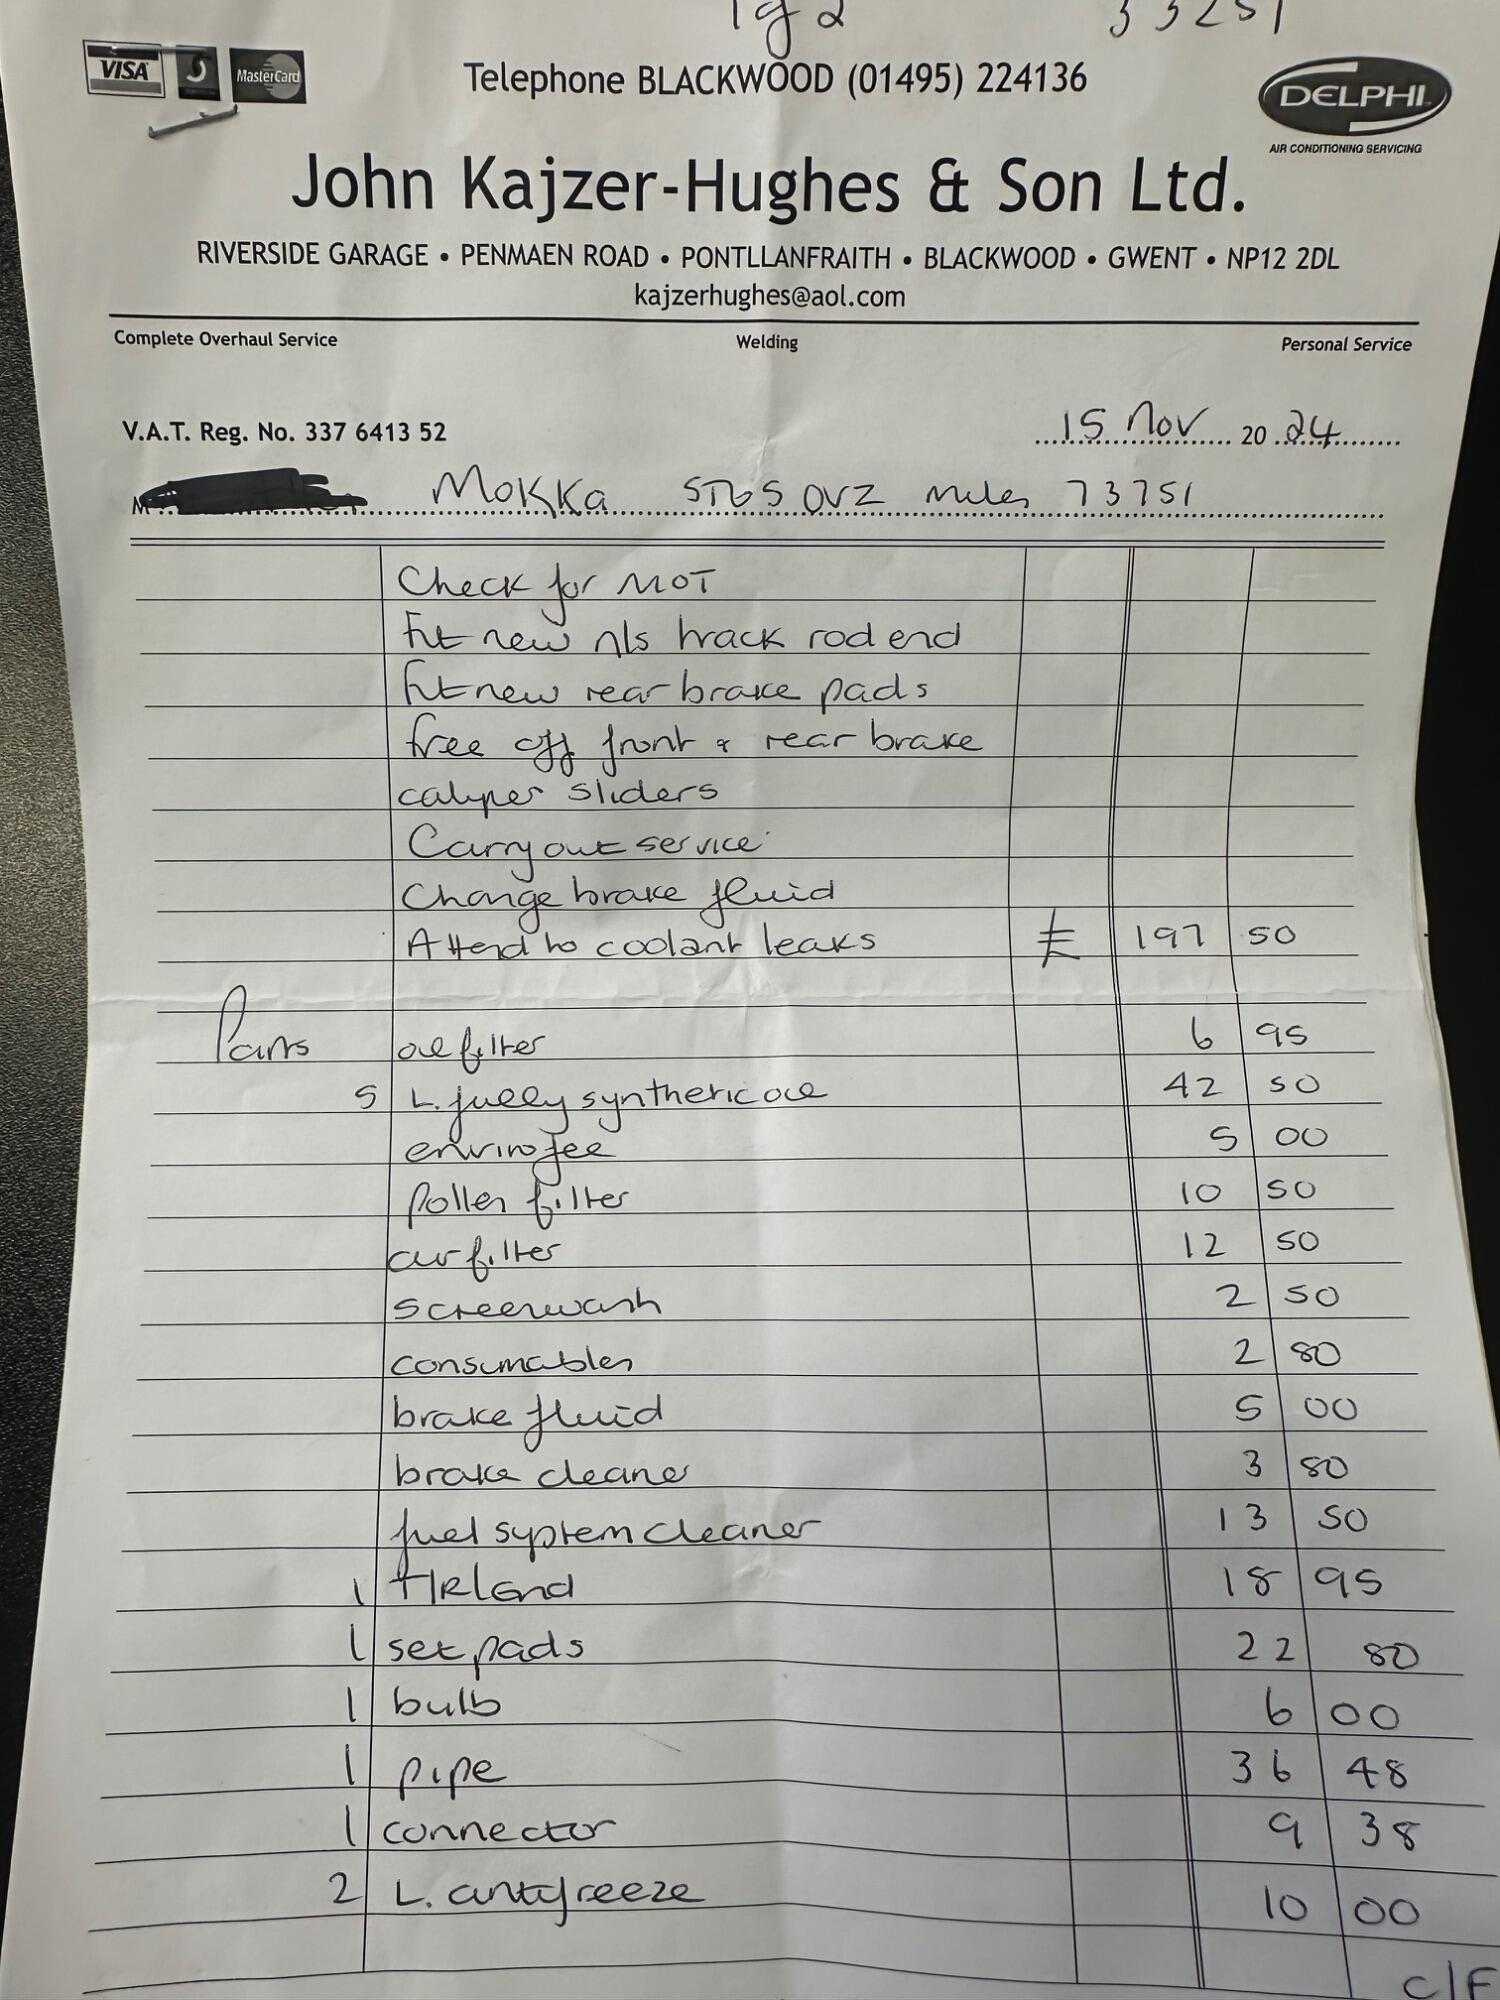 1 of 2 33251
VISA MasterCard
Telephone BLACKWOOD (01495) 224136
DELPHI
AIR CONDITIONING SERVICING
John Kajzer-Hughes & Son Ltd.
RIVERSIDE GARAGE • PENMAEN ROAD • PONTLLANFRAITH • BLACKWOOD • GWENT • NP12 2DL
kajzerhughes@aol.com
Complete Overhaul Service Welding Personal Service
V.A.T. Reg. No. 337 6413 52 15 Nov 20 24
M Mokka ST65 OVZ miles 73751
Check for MOT
Fit new n/s track rod end
Fit new rear brake pads
free off front & rear brake
caliper sliders
Carry out service
Change brake fluid
Attend to coolant leaks £ 197 50
Parts oil filter 6 95
5 L. fully synthetic oil 42 50
enviro fee 5 00
pollen filter 10 50
air filter 12 50
screenwash 2 50
consumables 2 80
brake fluid 5 00
brake cleaner 3 80
fuel system cleaner 13 50
1 T/R End 18 95
1 set pads 22 80
1 bulb 6 00
1 pipe 36 48
1 connector 9 38
2 L. antifreeze 10 00
C/F